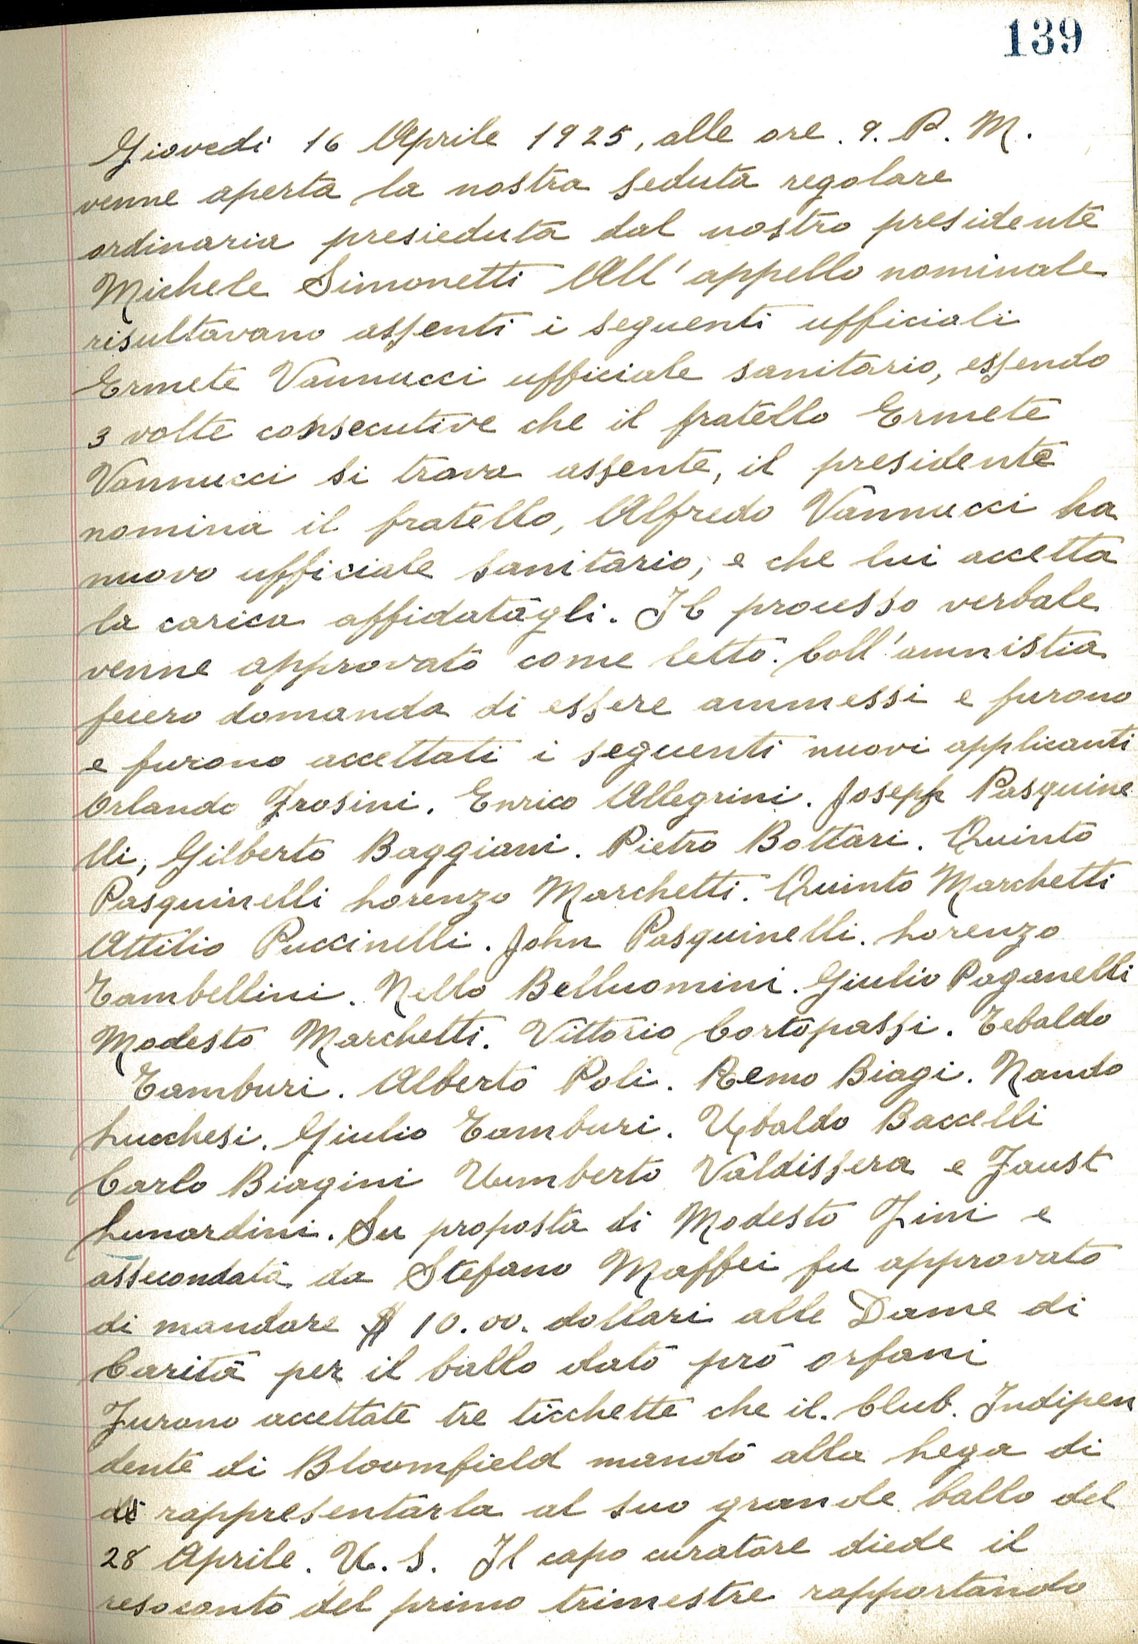 139
Giovedi 16 Aprile 1925, alle ore. 9. P. M.
venne aperta la nostra seduta regolare
ordinaria presieduta dal nostro presidente
Michele Simonetti All' appello nominale
risultavano assenti i seguenti ufficiali
Ermete Vannucci ufficiale sanitario, essendo
3 volte consecutive che il fratello Ermete
Vannucci si trova assente, il presidente
nomina il fratello, Alfredo Vannucci ha
nuovo ufficiale sanitario, e che lui accetta
la carica affidatagli. Il processo verbale
venne approvato come letto. Coll'amnistia
fecero domanda di essere ammessi e furono
e furono accettati i seguenti nuovi applicanti
Orlando Frosini. Enrico Allegrini. Joseph Pasquine
lli, Gilberto Baggiani. Pietro Bottari. Quinto
Pasquinelli Lorenzo Marchetti. Quinto Marchetti
Attilio Puccinelli. John Pasquinelli. Lorenzo
Tambellini. Nello Belluomini. Giulio Paganelli
Modesto Marchetti. Vittorio Cortopassi. Tebaldo
Tamburi. Alberto Poli. Remo Biagi. Nando
Lucchesi. Giulio Tamburi. Ubaldo Baccelli
Carlo Biagini Uumberto Valdissera e Faust
Lunardini. Su proposta di Modesto Fini e
assecondata da Stefano Maffei fu approvato
di mandare $ 10.00. dollari alle Dame di
Carità per il ballo dato prò orfani
Furono accettate tre ticchette che il. Club. Indipen
dente di Bloomfield mandò alla Lega di
di rappresentarla al suo grande ballo del
28 Aprile. U. S. Il capo curatore diede il
resoconto del primo trimestre rapportando